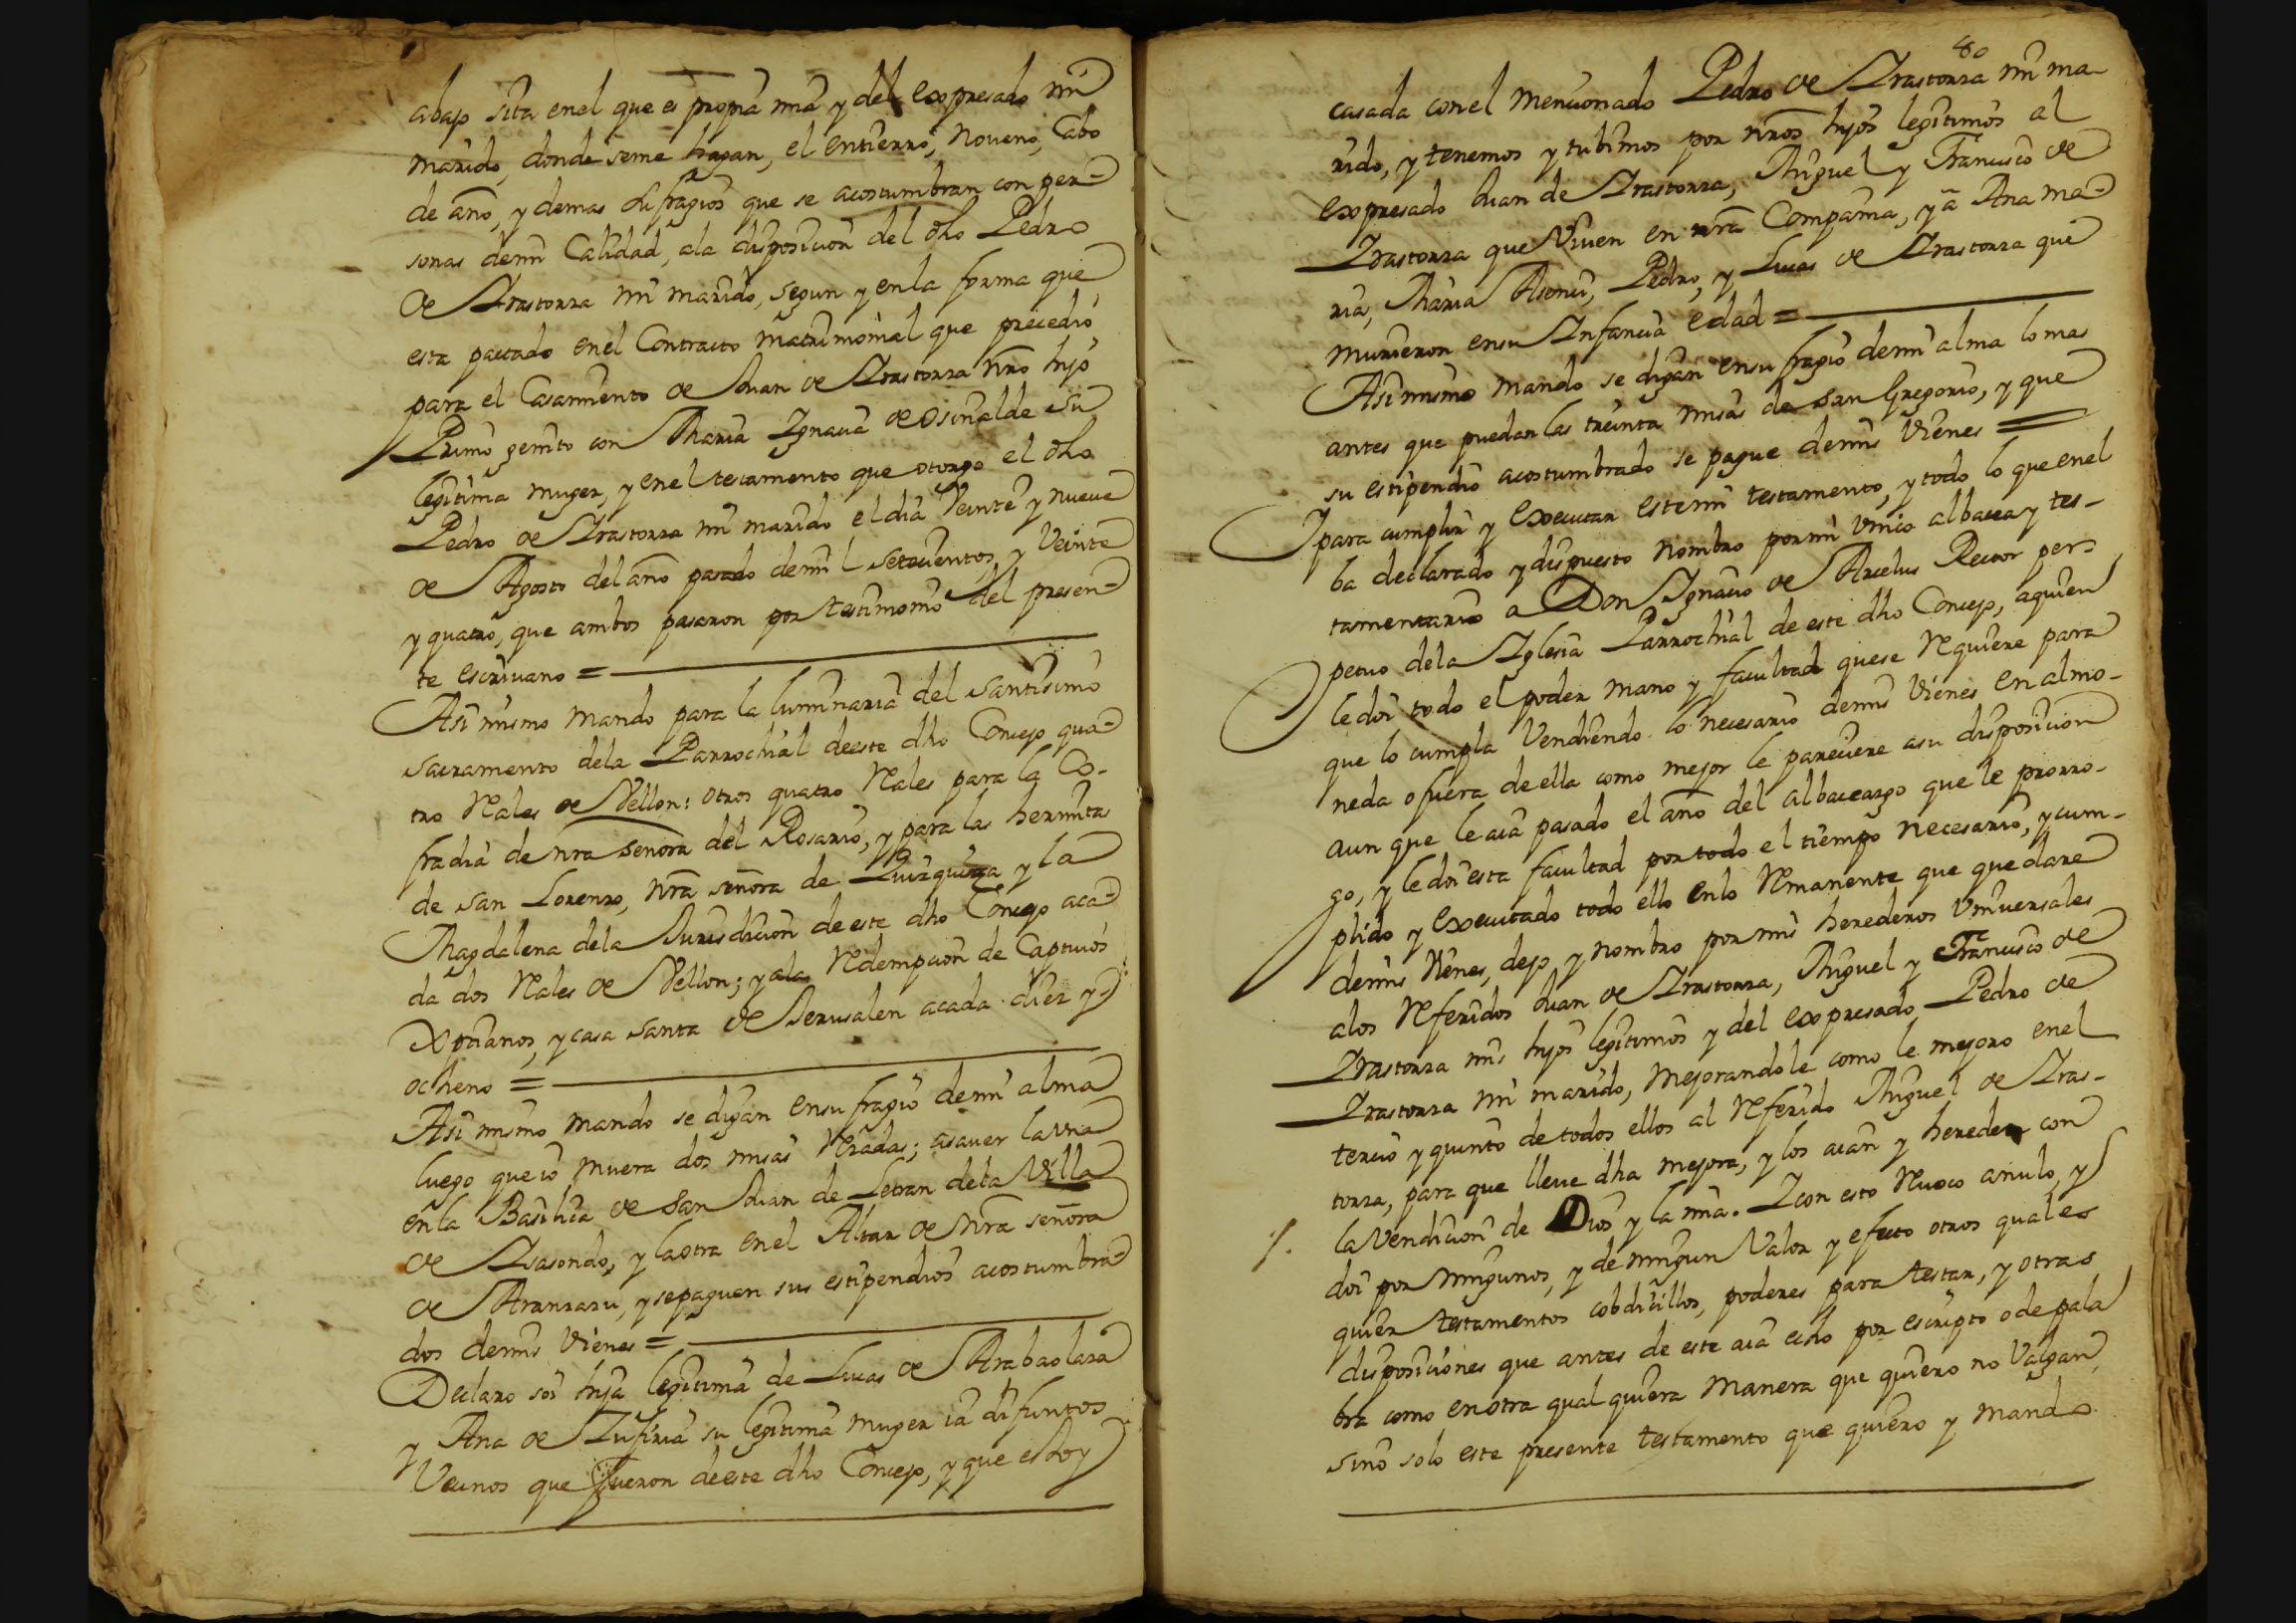 abajo sita enel que es propia mia y del expresado mi
marido, donde seme hagan, el entierro, noveno, Cabo
de año, y demas sufragios que se acostumbran con per-
sonas demi Calidad, ala disposicion del dho Pedro
de Irastorza mi marido, segun y enla forma que
esta pactado enel Contracto matrimonial que precedio
para el Casamiento de Juan de Irastorza nro hijo
Primo genito con Maria Ignacia de Osinalde su
legitima muger, y enel testamento que otorgo el dho
Pedro de Irastorza mi marido el dia Veinte y nueve
de Agosto del año pasado demil setecientos y Veinte
y quatro, que ambos pasaron por testimonio del presen-
te escrivano =
Asi mismo mando para la luminaria del Santisimo
sacramento dela Parrochial deeste dho Concejo qua-
tro Rales de Vellon: otros quatro Rales para la Co-
fradia de nra Señora del Rosario, y para las hermitas
de san Lorenzo, nra señora de Quizquiza y la
Magdalena dela Jurisdicion de este dho Concejo aca-
da dos Rales de Vellon; y ala Redempcion de Captivos
Xptianos, y casa santa de Jerusalen acada diez y
ocheno =
Asi mismo mando se digan ensu fragio demi alma
luego que io muera dos misas Rezadas; asaver la una
enla Basilica de San Juan de Letran dela Villa
de Isasondo, y la otra enel Altar de nra señora
de Aranzazu, y sepaguen sus estipendios acostumbra-
dos demis Vienes =
Declaro soi hija legitima de Lucas de Arabaolaza
y Ana de Zufiria su legitima muger ia difuntos
Vecinos que fueron deeste dho Concejo, y que estoy
80
casada conel mencionado Pedro de Irastorza mi ma-
rido, y tenemos y tubimos por nros hijos legitimos al
expresado Juan de Irastorza, Miguel y Francisco de
Irastorza que Viven en nra Compañia, y a Ana ma-
ria, Maria Asencia, Pedro, y Lucas de Irastorza que
murieron ensu Infancia edad =
Asi mismo mando se digan ensu fragio demi alma lo mas
antes que puedan las treinta misas de san Gregorio, y que
su estipendio acostumbrado se pague demis Vienes =
Ipara cumplir y executar estemi testamento, y todo lo que enel
ba declarado y dispuesto nombro pormi Unico albacea y tes-
tamentario a Don Ignacio de Arcelus Rector per-
petuo dela Iglesia Parrochial de este dho Concejo, aquien
le doi todo el poder mano y facultad quese Requiere para
que lo cumpla Vendiendo lo necesario demis Vienes en almo-
neda o fuera de ella como mejor le pareciere asu disposicion
aun que le aia pasado el año del albaceazgo que le prorro-
go, y le doi esta facultad por todo el tiempo necesario, y cum-
plido y Executado todo ello enlo Remanente que quedare
demis Vienes, dejo y nombro por mis herederos Universales
alos Referidos Juan de Irastorza, Miguel y Francisco de
Irastorza mis hijos legitimos y del expresado Pedro de
Irastorza mi marido, mejorandole como le mejoro enel
tercio y quinto de todos ellos al Referido Miguel de Iras-
torza, para que lleve dha mejora, y los aian y hereden con
la Vendicion de Dios y la mia. Icon esto Revoco anulo, y
doi por ningunos, y de ningun Valor y efecto otros quales
quier testamentos cobdicillos, poderes para testar, y otras
disposiciones que antes de este aia echo por escripto o de pala
bra como en otra qual quiera manera que quiero no Valgan,
sino solo este presente testamento que quiero y mando